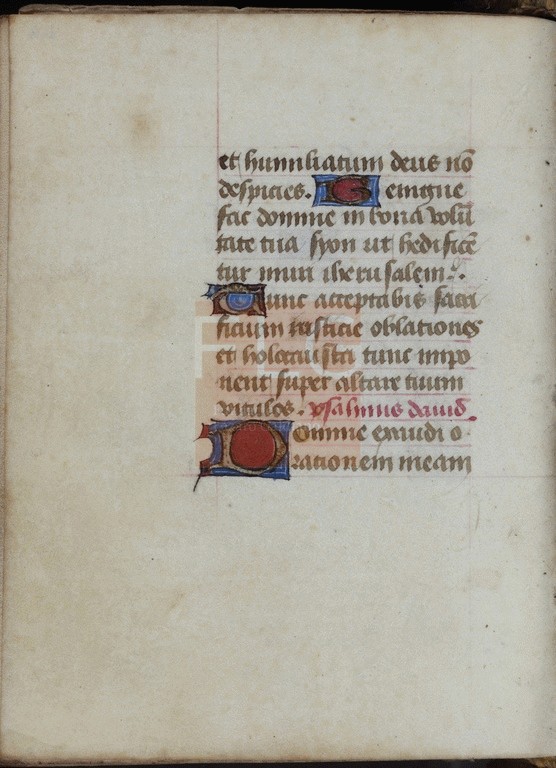 et humiliatum deus nō
despicies. B enigne
fac domine in bona volū
tate tua syon ut hedificē
tur muri iherusalem.
Tunc acceptabis sacri
ficium iusticie oblationes
et holocausta tunc impo
nent super altare tuum
vitulos. psalmus dauid.
Domine exaudi o
rationem meam
FLG